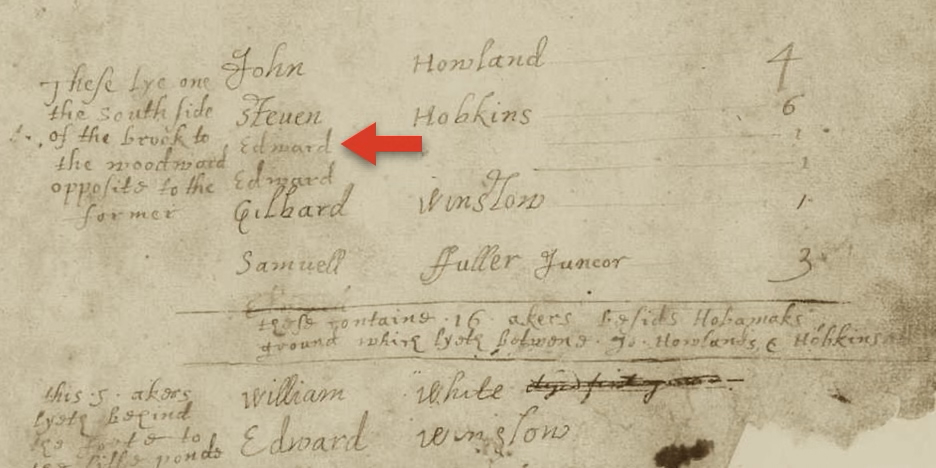 John Howland 4
These lye one
the South side
Steven Hobkins 6
of the brook to
Edward 1
the woodward
Edward 1
opposite to the
Gilbard Winslow 1
former
Samuell ffuller Juneor 3
these containe 16 akers besids Hobamaks
ground which lyeth betwene Jo: Howlands & Hobkins
this 5 akers
William White
lyeth behind
Edward Winslow
to
ponde